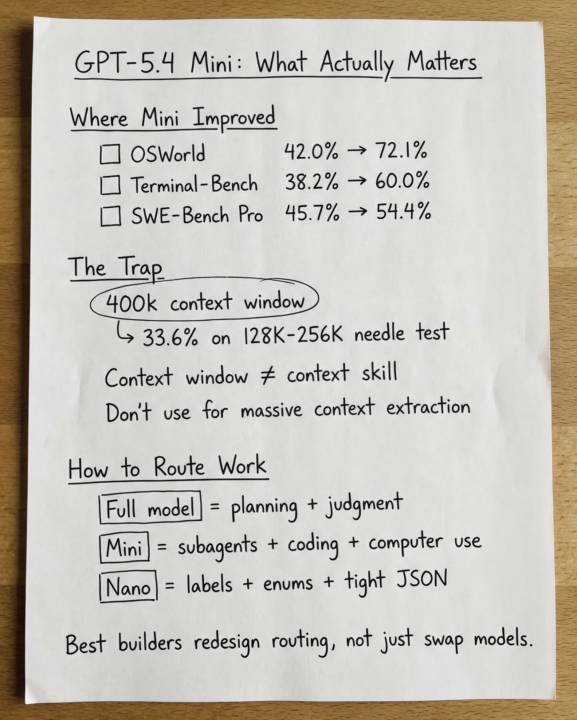 GPT-5.4 Mini: What Actually Matters
Where Mini Improved
☐ OSWorld 42.0% → 72.1%
☐ Terminal-Bench 38.2% → 60.0%
☐ SWE-Bench Pro 45.7% → 54.4%
The Trap
400k context window
↳ 33.6% on 128K-256K needle test
Context window ≠ context skill
Don't use for massive context extraction
How to Route Work
Full model = planning + judgment
Mini = subagents + coding + computer use
Nano = labels + enums + tight JSON
Best builders redesign routing, not just swap models.